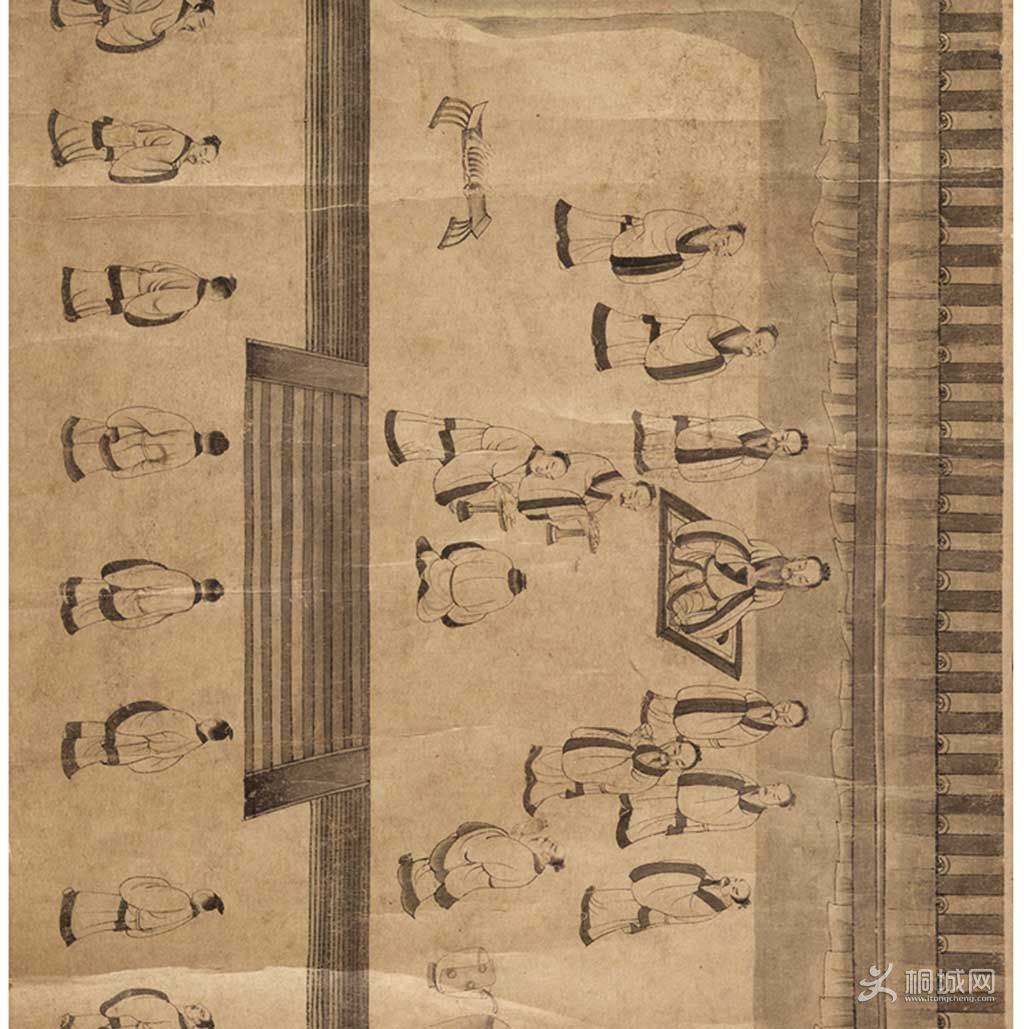 桐城网
www.itongcheng.com